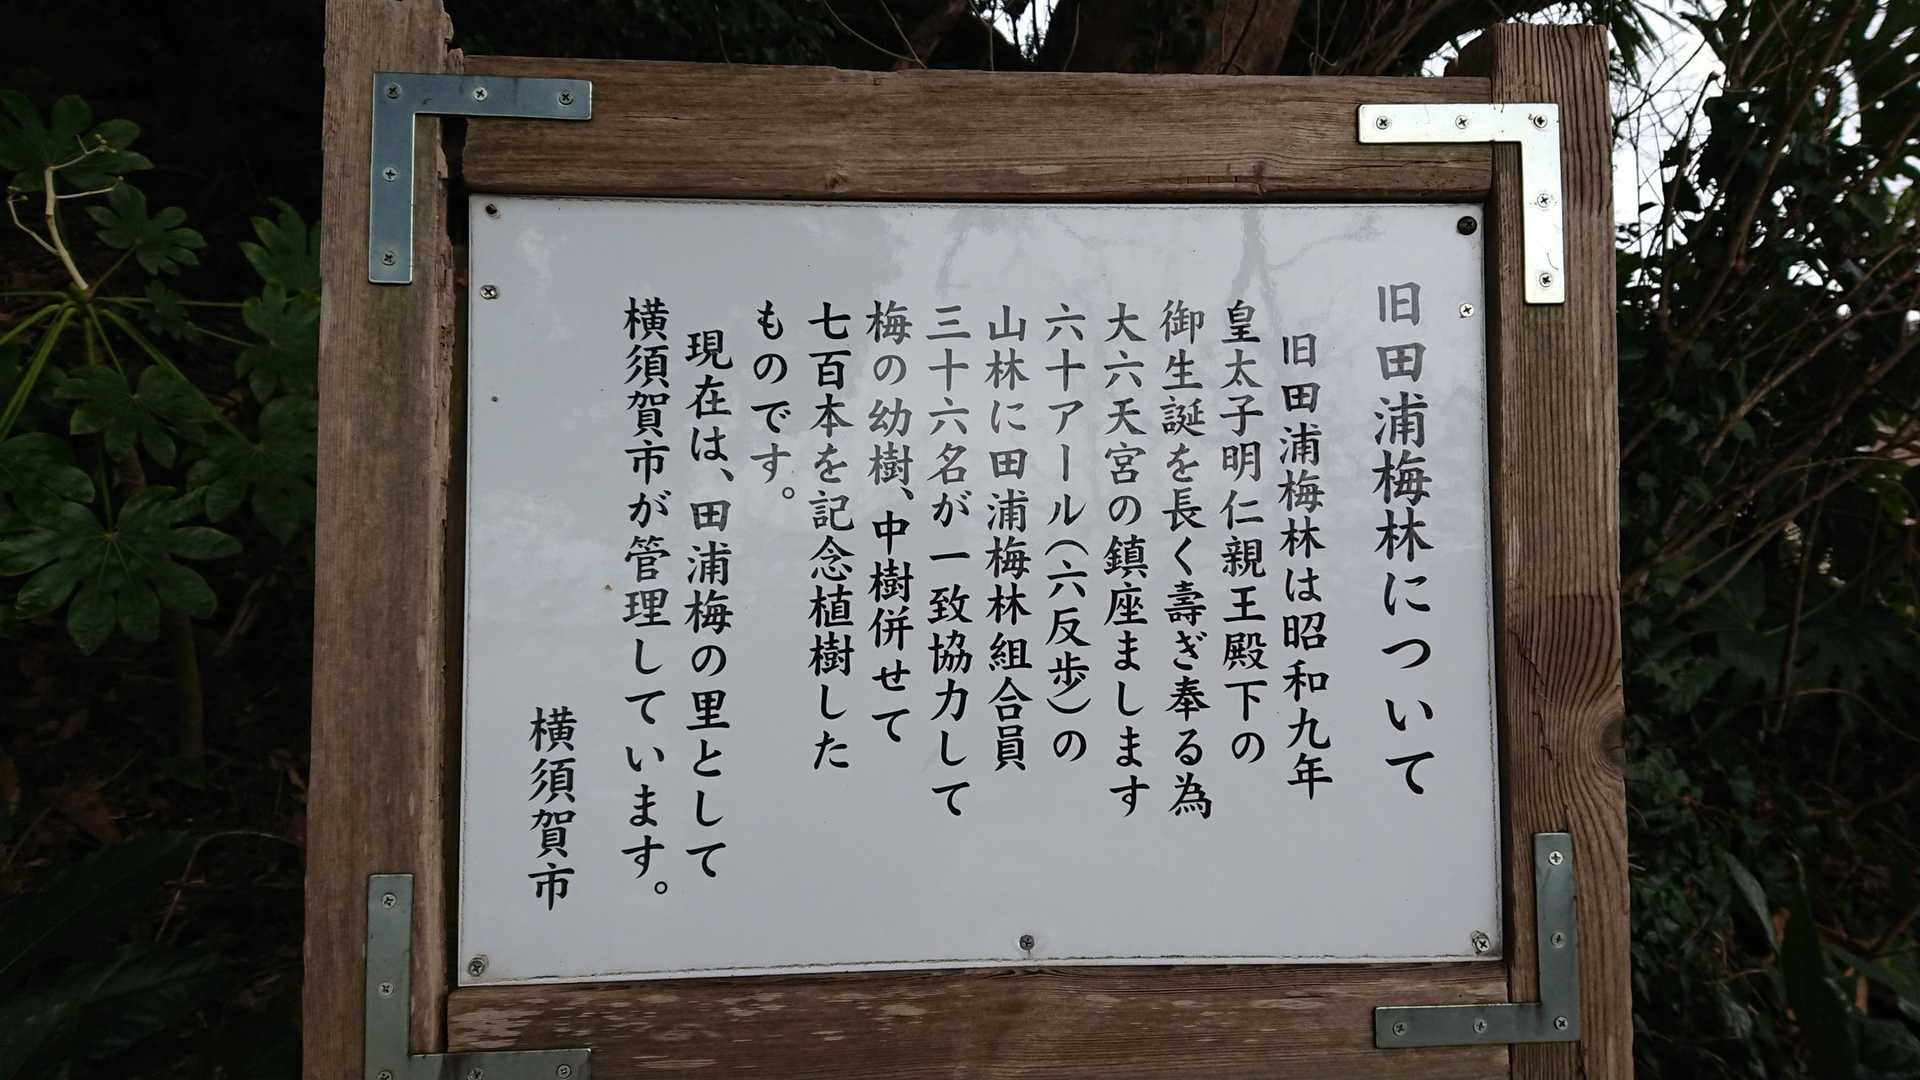 旧田浦梅林について
旧田浦梅林は昭和九年
皇太子明仁親王殿下の
御生誕を長く壽ぎ奉る為
大六天宮の鎮座まします
六十アール(六反歩)の
山林に田浦梅林組合員
三十六名が一致協力して
梅の幼樹、中樹併せて
七百本を記念植樹した
ものです。
現在は、田浦梅の里として
横須賀市が管理しています。
横須賀市